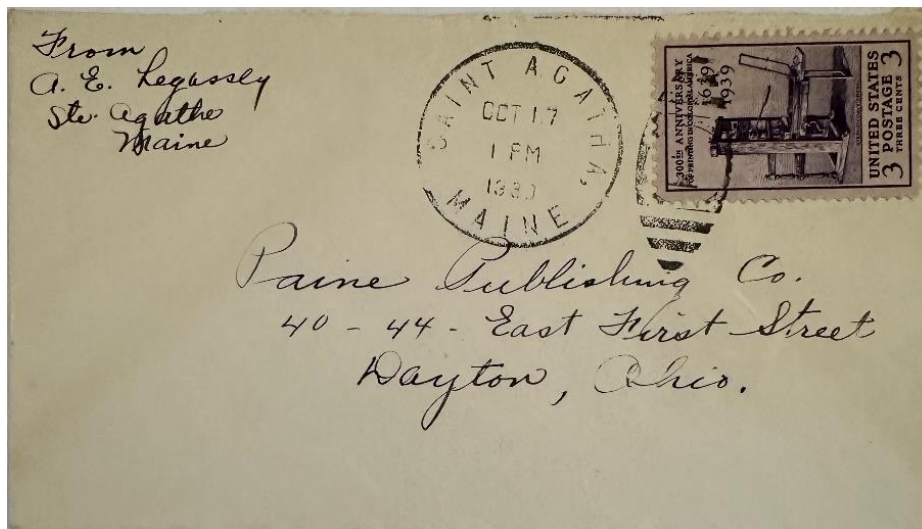 From
A. E. Legassey
Ste. Agathe
Maine
SAINT AGATHA,
OCT 17
1 PM
1939
MAINE
300TH ANNIVERSARY
OF PRINTING IN COLONIAL AMERICA
1639
1939
UNITED STATES
3 POSTAGE 3
THREE CENTS
Paine Publishing Co.
40 - 44 - East First Street
Dayton, Ohio.